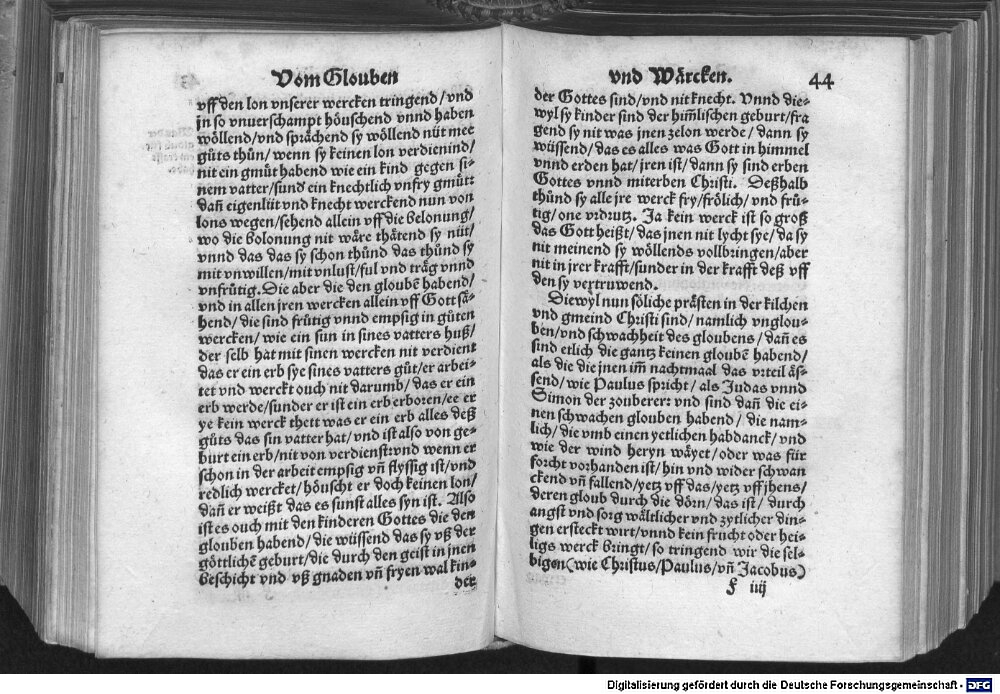 Vom Glouben
vff den lon vnserer wercken tringend/vnd
jn so vnuerschampt höuschend vnnd haben
wöllend/vnd sprächend sy wöllend nüt mee
gůts thůn/wenn sy keinen lon verdienind/
nit ein gmüt habend wie ein kind gegen si-
nem vatter/sund ein knechtlich vnfry gmüt:
dañ eigenlüt vnd knecht werckend nun von
lons wegen/sehend allein vff die belonung/
wo die bolonung nit wäre thätend sy nüt/
vnnd das das sy schon thůnd das thůnd sy
mit vnwillen/mit vnlust/ful vnd träg vnnd
vnfrütig. Die aber die den gloubē habend/
vnd in allen jren wercken allein vff Gott sä-
hend/die sind frütig vnnd empsig in gůten
wercken/wie ein sun in sines vatters huß/
der selb hat mit sinen wercken nit verdient
das er ein erb sye sines vatters gůt/er arbei-
tet vnd werckt ouch nit darumb/das er ein
erb werde/sunder er ist ein erb erboren/ee er
ye kein werck thett was er ein erb alles deß
gůts das sin vatter hat/vnd ist also von ge-
burt ein erb/nit von verdienst: vnd wenn er
schon in der arbeit empsig vñ flyssig ist/vnd
redlich wercket/höuscht er doch keinen lon/
dañ er weißt das es sunst alles syn ist. Also
ist es ouch mit den kinderen Gottes die den
glouben habend/die wüssend das sy vß der
göttlichē geburt/die durch den geist in jnen
beschicht vnd vß gnaden vñ fryen wal kin-
der
vnd Wärcken. 44
der Gottes sind/vnd nit knecht. Vnnd die-
wyl sy kinder sind der him̄lischen geburt/fra
gend sy nit was jnen zelon werde/dann sy
wüssend/das es alles was Gott in himmel
vnnd erden hat/jren ist/dann sy sind erben
Gottes vnnd miterben Christi. Deßhalb
thůnd sy alle jre werck fry/frölich/vnd frü-
tig/one vrdrutz. Ja kein werck ist so groß
das Gott heißt/das jnen nit lycht sye/da sy
nit meinend sy wöllends vollbringen/aber
nit in jrer krafft/sunder in der krafft deß vff
den sy vertruwend.
Diewyl nun söliche prästen in der kilchen
vnd gmeind Christi sind/namlich vnglou-
ben/vnd schwachheit des gloubens/dañ es
sind etlich die gantz keinen gloubē habend/
als die die jnen im̄ nachtmaal das vrteil äs-
send/wie Paulus spricht/als Judas vnnd
Simon der zouberer: vnd sind dañ die ei-
nen schwachen glouben habend/die nam-
lich/die vmb einen yetlichen habdanck/vnd
wie der wind heryn wäyet/oder was für
forcht vorhanden ist/hin vnd wider schwan
ckend vñ fallend/yetz vff das/yetz vff jhens/
deren gloub durch die dörn/das ist/durch
angst vnd sorg wältlicher vnd zytlicher din-
gen ersteckt wirt/vnnd kein frucht oder hei-
ligs werck bringt/so tringend wir die sel-
bigen (wie Christus/Paulus/vñ Jacobus)
f iiij
Digitalisierung gefördert durch die Deutsche Forschungsgemeinschaft - DFG